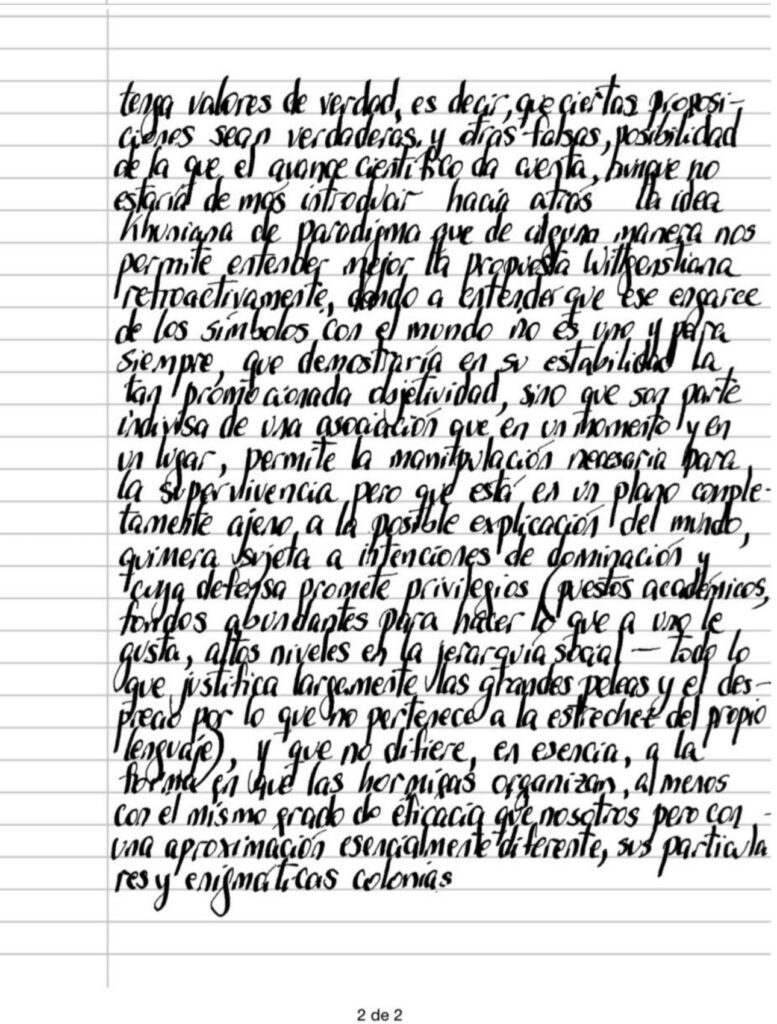 tenga valores de verdad, es decir, que ciertas proposi-
ciones sean verdaderas y otras falsas, posibilidad
de la que el avance científico da cuenta, aunque no
estaría de más introducir hacia atrás la idea
khuniana de paradigma que de alguna manera nos
permite entender mejor la propuesta Witgenstiana
retroactivamente, dando a entender que ese engarce
de los símbolos con el mundo no es uno y para
siempre, que demostraría en su estabilidad la
tan promocionada objetividad, sino que son parte
indivisa de una asociación que en un momento y en
un lugar, permite la manipulación necesaria para
la supervivencia pero que está en un plano comple-
tamente ajeno a la posible explicación del mundo,
quimera sujeta a intenciones de dominación y
cuya defensa promete privilegios (puestos académicos,
fondos abundantes para hacer lo que a uno le
gusta, altos niveles en la jerarquía social — todo lo
que justifica largamente las grandes peleas y el des-
precio por lo que no pertenece a la estrechez del propio
lenguaje), y que no difiere, en esencia, a la
forma en que las hormigas organizan, al menos
con el mismo grado de eficacia que nosotros pero con
una aproximación esencialmente diferente, sus particula
res y enigmáticas colonias
2 de 2